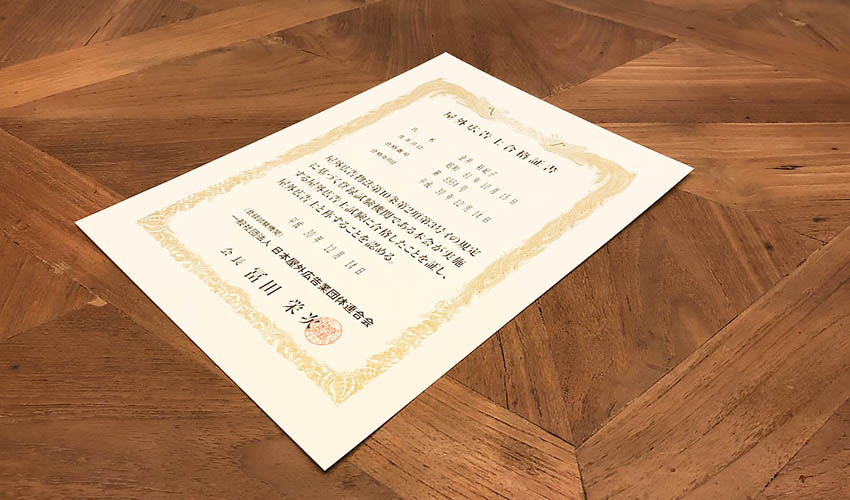 屋外広告士合格証書
氏名 金井 裕紀子
生年月日 昭和 61年 10月 15日
合格番号 第 5834 号
合格年月日 平成 30年 12月 14日
屋外広告物法第10条第2項第3号イの規定
に基づく登録試験機関である本会が実施
する屋外広告士試験に合格したことを証し、
屋外広告士と称することを認める。
平成 30年 12月 14日
(登録試験機関)
一般社団法人 日本屋外広告業団体連合会
会長 冨田 栄次